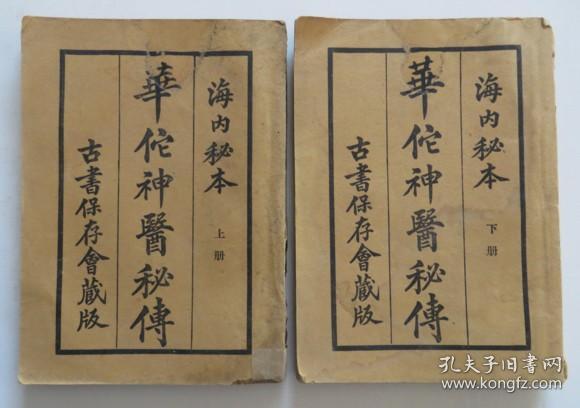 海内秘本
上册
華佗神醫秘傳
古書保存會藏版
海内秘本
下册
華佗神醫秘傳
古書保存會藏版
孔夫子旧书网
www.kongfz.com